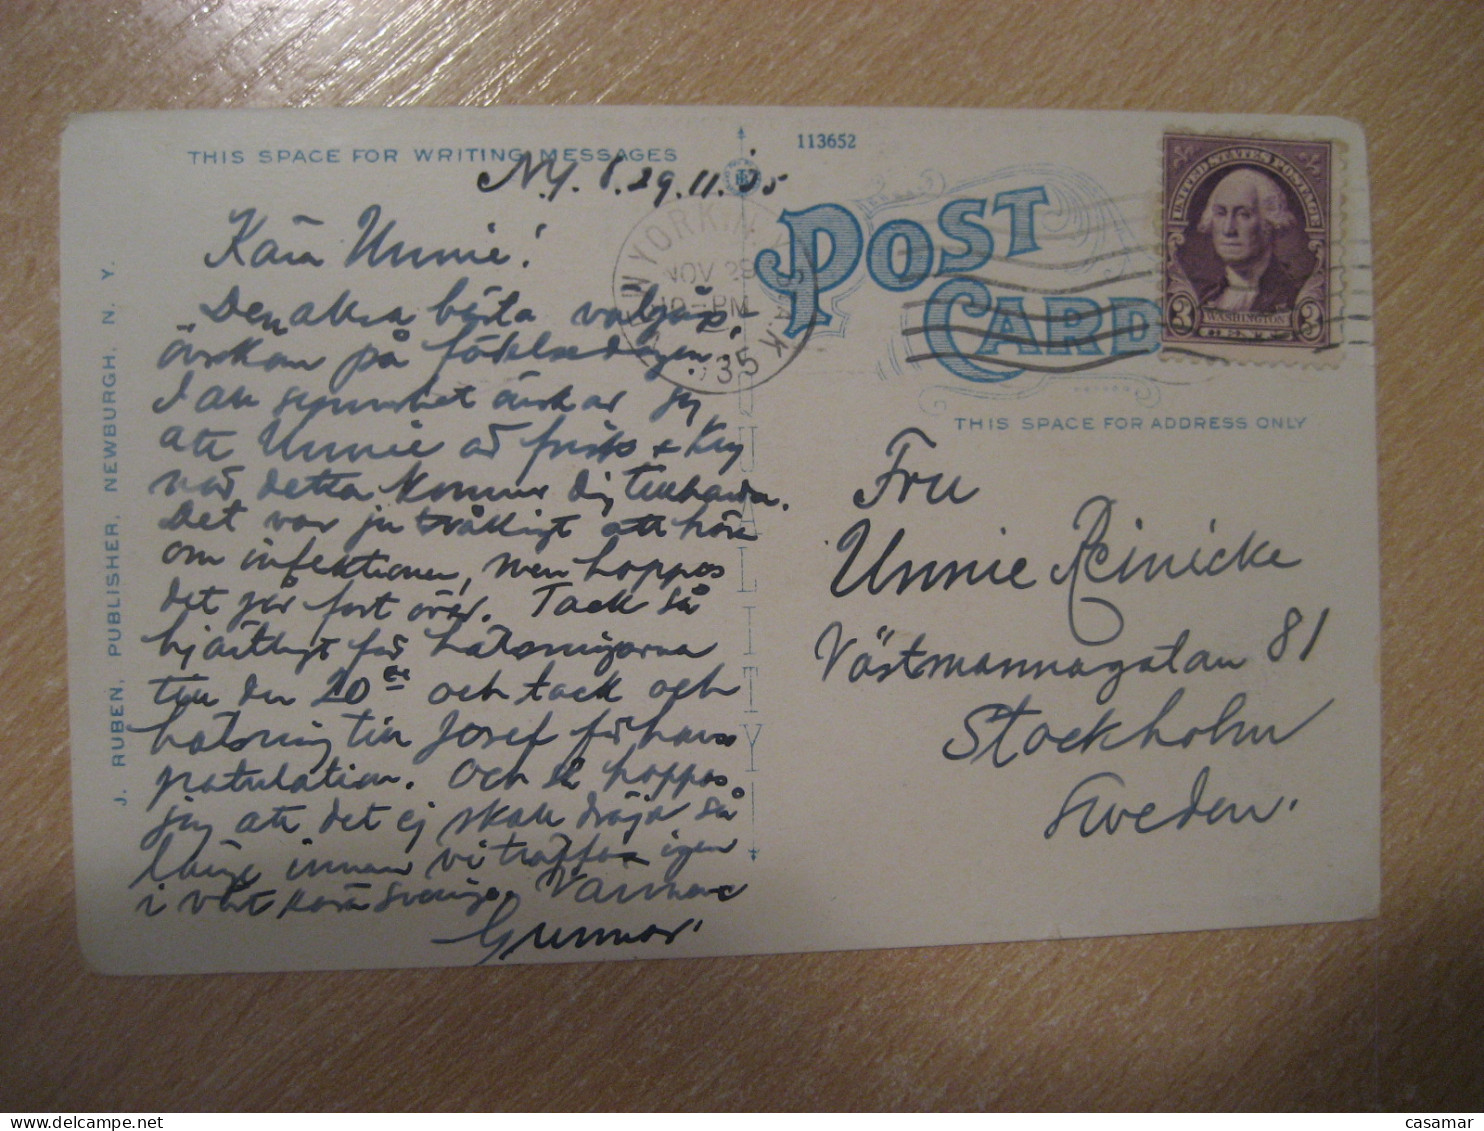 THIS SPACE FOR WRITING MESSAGES
113652
N.Y. 29.11.35
Kära Unnie!
Den allra bästa välgångs-
önskan på födelsedagen.
I all synnerhet önskar jag
att Unnie är frisk
när detta kommer dig tillhanda.
Det var ju tråkligt att höra
om infektionen, men hoppas
det går fort över. Tack så
hjärtligt för hälsningarna
till den 20 och tack och
hälsning till Josef för hans
gratulation. Och så hoppas
jag att det ej skall dröja så
länge innan vi träffas igen
i vårt kära Sverige.
Gunnar.
J. RUBEN, PUBLISHER, NEWBURGH, N. Y.
QUALITY
NEW YORK, N.Y.
NOV 29
PM
1935
POST
CARD
UNITED STATES POSTAGE
WASHINGTON
3 CENTS 3
THIS SPACE FOR ADDRESS ONLY
Fru
Unnie Reinicke
Västmannagatan 81
Stockholm
Sweden.
casamar